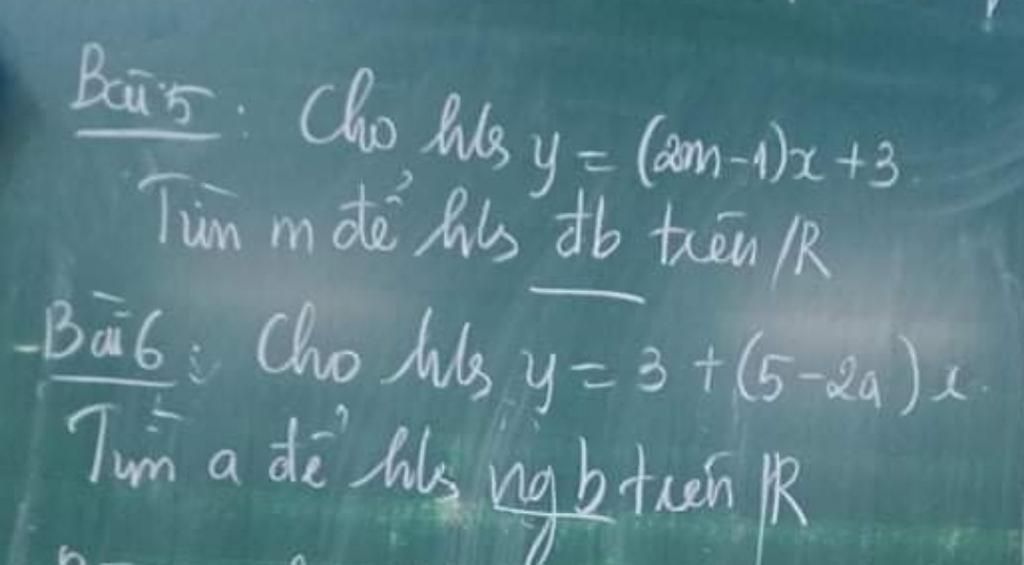 Bài 5: Cho hs y = (2m-1)x + 3.
Tìm m để hs đb trên R
Bài 6: Cho hs y = 3 + (5-2a)x.
Tìm a để hs ngb trên R